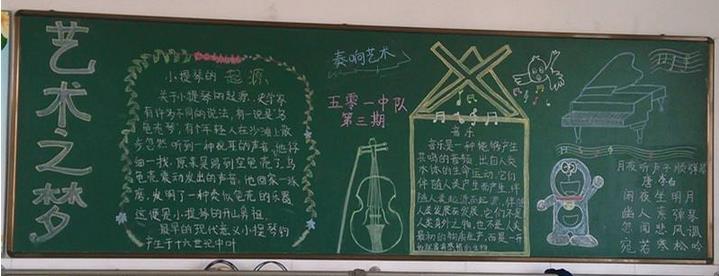 艺术之梦
小提琴的起源
关于小提琴的起源,史学家
有许为不同的说法,有一说是乌
龟壳琴,有个年轻人在沙滩上散
步忽然听到一种悦耳的声音,他仔
细一找,原来是踢到空龟壳了,乌
龟壳震动发出的声音,他回家一琢
磨,发明了一种类似龟壳的乐器
这便是小提琴的开山鼻祖。
最早的现代意义小提琴的
产生于十六世纪中叶
奏响艺术
五零一中队
第三期
音乐
音乐是一种能够产生
共鸣的音频,出自人类
本体的生命运动,它们
伴随人类产生而产生,伴
随人类起源而起源,伴随
人类发展而发展,它们不是
人类身外之物,也不是人类
最初的物质生产,而是一开
月夜听卢子顺弹琴
唐 李白
闲夜坐明月
幽人弹素琴
忽闻悲风调
宛若寒松吟